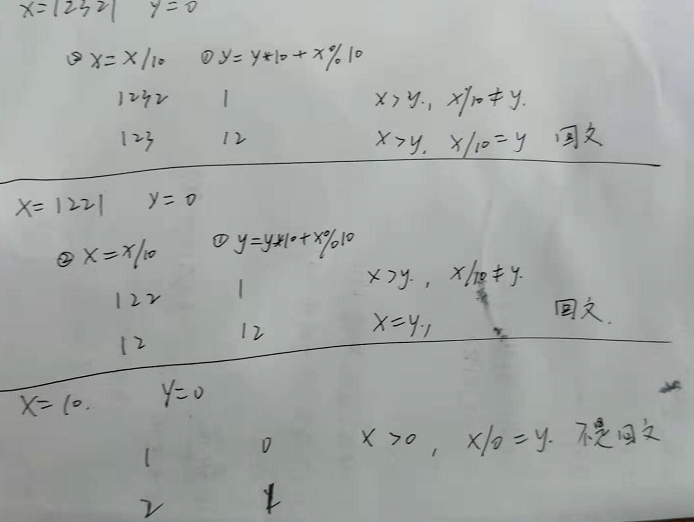 X=12321 y=0
② X=X/10 ① y=y*10+X%10
1232 1 X>y., X/10≠y.
123 12 X>y. X/10=y 回文
X=1221 y=0
② X=X/10 ① y=y*10+X%10
122 1 X>y., X/10≠y.
12 12 X=y., 回文.
X=10. y=0
1 0 X>0, X/0=y. 不是回文
2 1